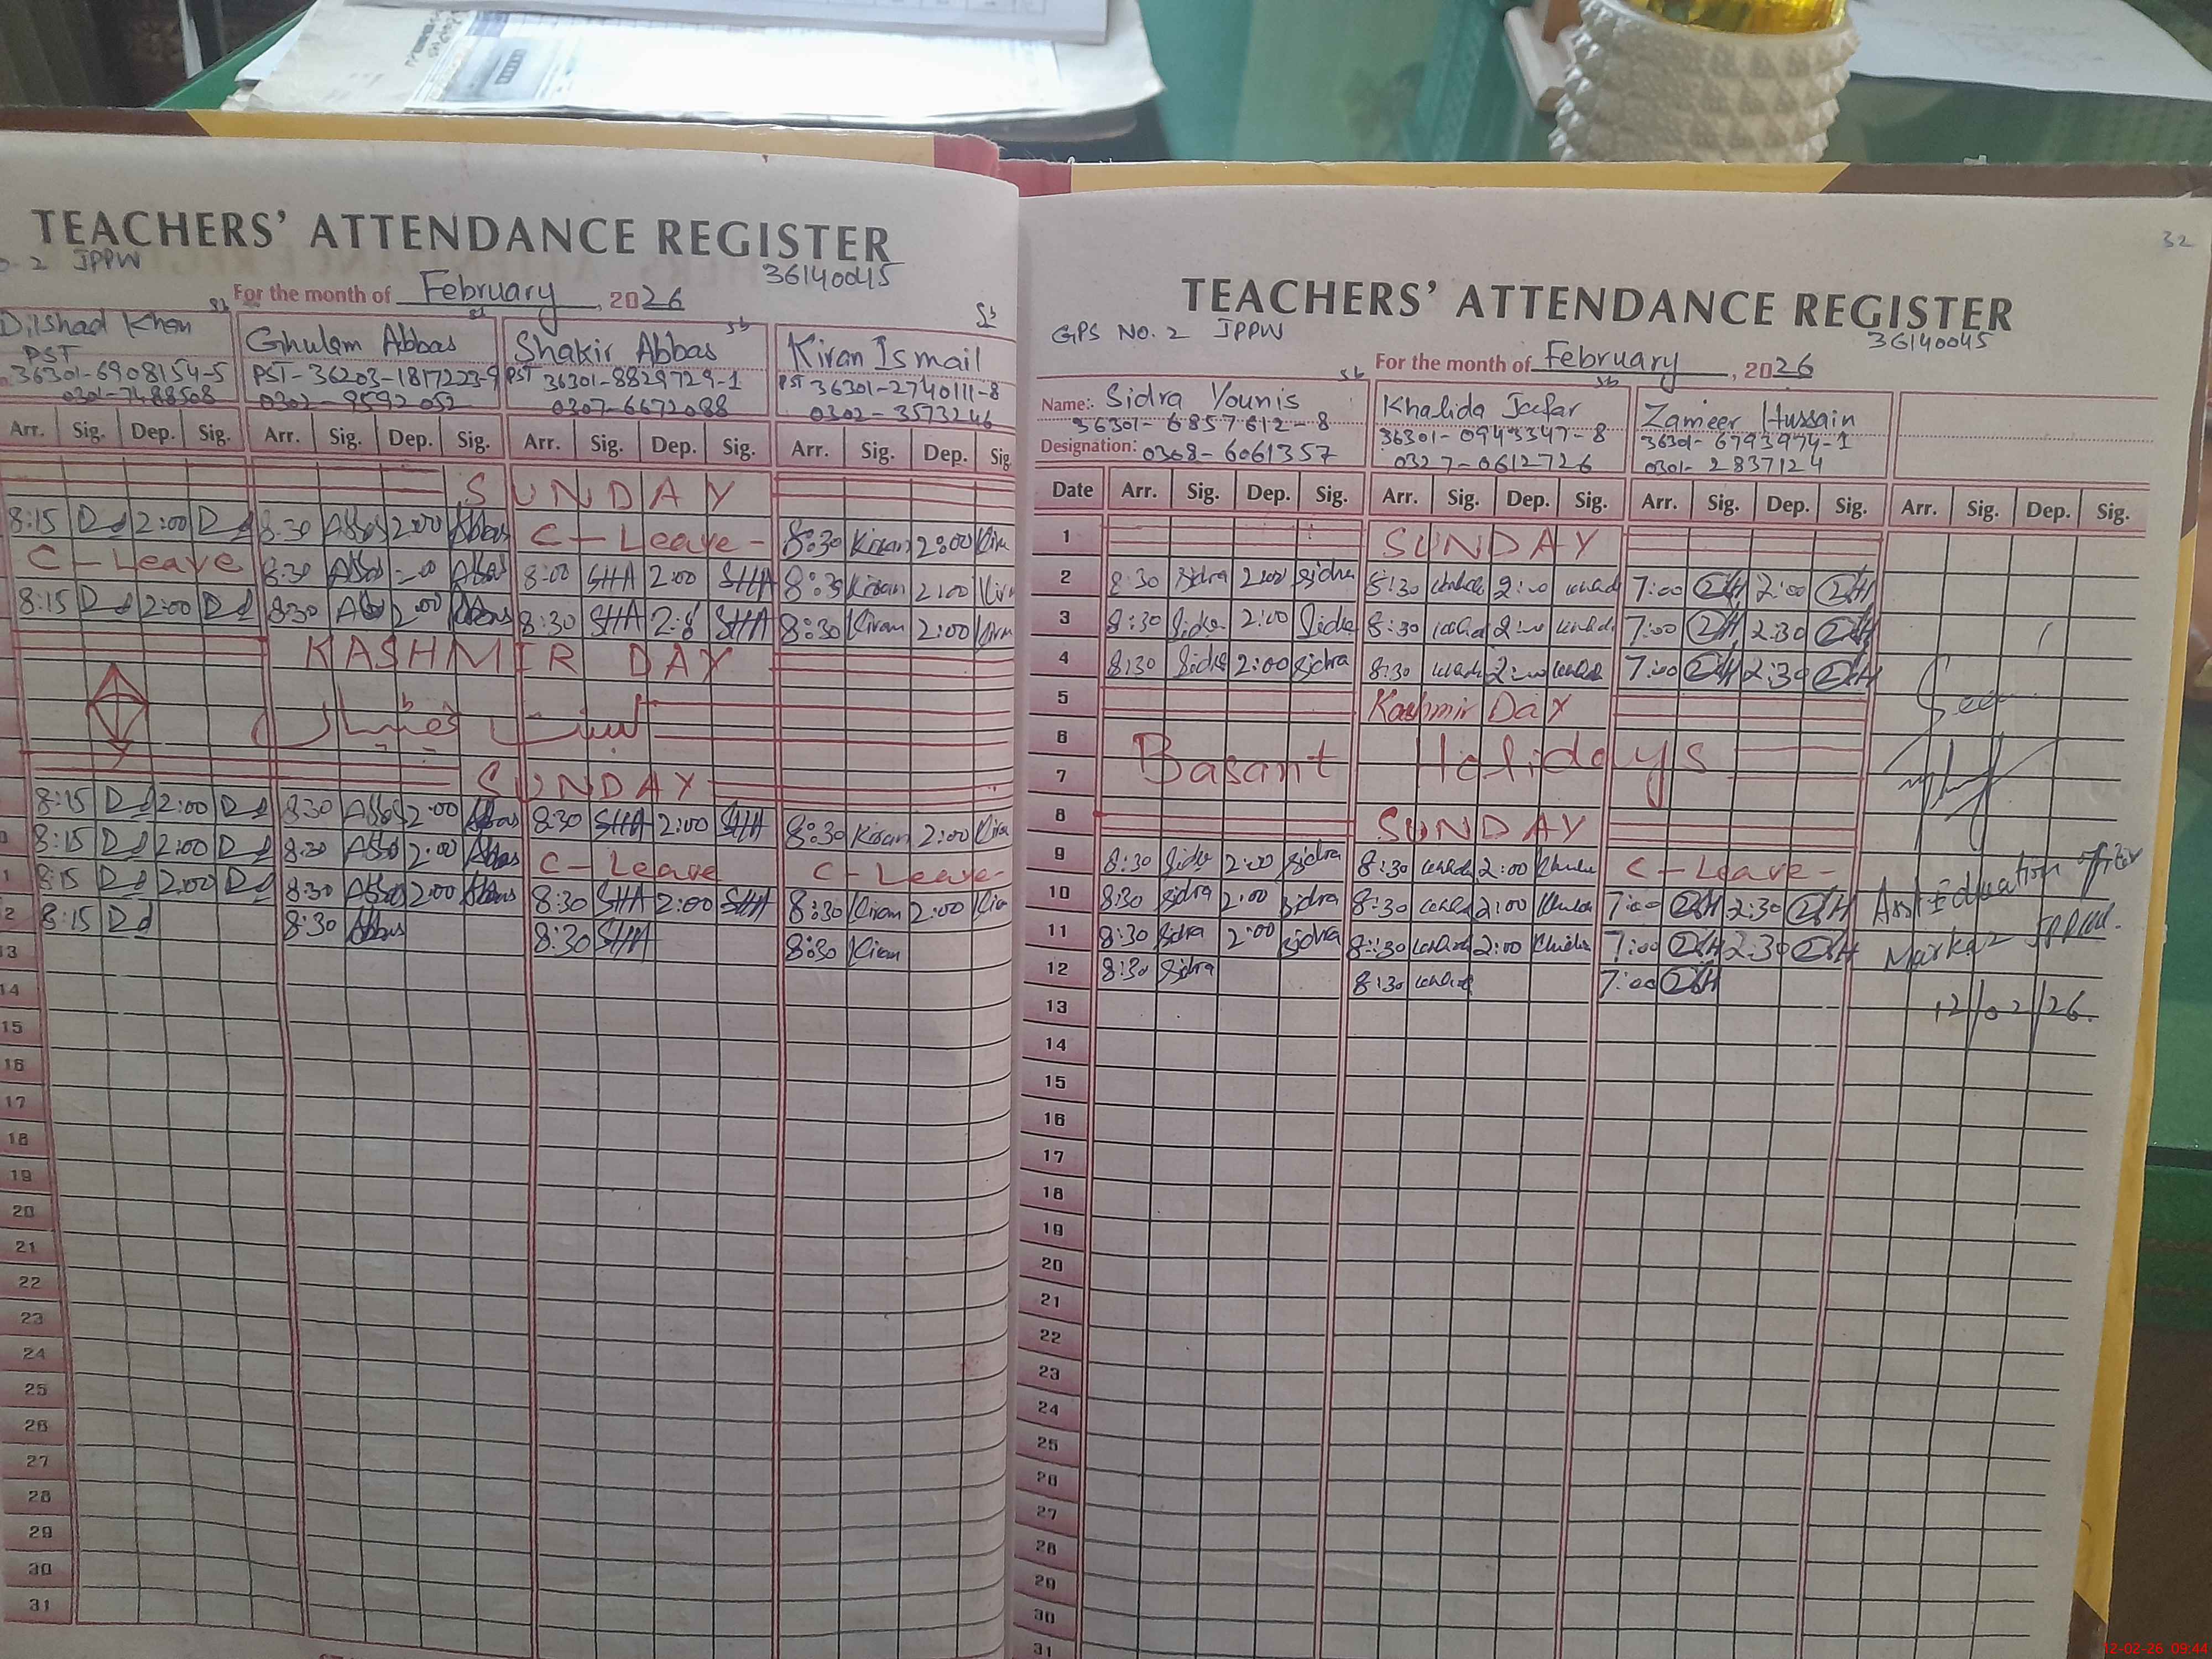 TEACHERS' ATTENDANCE REGISTER
2 JPPW
36140045
For the month of February, 2026
Dilshad Khan
PST
36301-6908154-5
0301-7488508
Ghulam Abbas
PST-36203-1817223-9
0302-9592052
Shakir Abbas
PST 36301-8829729-1
0307-6672088
Kiran Ismail
PST 36301-2740111-8
0302-3573246
Arr. Sig. Dep. Sig. Arr. Sig. Dep. Sig. Arr. Sig. Dep. Sig. Arr. Sig. Dep. Sig.
SUNDAY
8:15 Dd 2:00 Dd 8:30 Abbas 2:00 Abbas C-Leave- 8:30 Kiran 2:00 Kiran
C-Leave 8:30 Abbas 2:00 Abbas 8:00 SHA 2:00 SHA 8:30 Kiran 2:00 Kiran
8:15 Dd 2:00 Dd 8:30 Abbas 2:00 Abbas 8:30 SHA SHA 8:30 Kiran 2:00 Kiran
KASHMIR DAY
بسنت
SUNDAY
8:15 Dd 2:00 Dd 8:30 Abbas 2:00 Abbas 8:30 SHA 2:00 SHA 8:30 Kiran 2:00 Kiran
8:15 Dd 2:00 Dd 8:30 Abbas 2:00 Abbas C-Leave C-Leave-
8:15 Dd 2:00 Dd 8:30 Abbas 2:00 Abbas 8:30 SHA 2:00 SHA 8:30 Kiran 2:00 Kiran
2 8:15 Dd 8:30 Abbas 8:30 SHA 8:30 Kiran
13
14
15
16
17
18
19
20
21
22
23
24
25
26
27
28
29
30
31
32
TEACHERS' ATTENDANCE REGISTER
GPS NO. 2 JPPW
36140045
For the month of February, 2026
Name:- Sidra Younis
36301-6857612-8
Designation: 0368-6061357
Khalida Jafar
36301-0943347-8
0327-0612726
Zameer Hussain
36301-6793974-1
0301-2837124
Date Arr. Sig. Dep. Sig. Arr. Sig. Dep. Sig. Arr. Sig. Dep. Sig. Arr. Sig. Dep. Sig.
1 SUNDAY
2 8:30 Sidra 2:00 Sidra 8:30 2:00 7:00 ZH 2:00 ZH
3 8:30 Sidra 2:00 Sidra 8:30 2:00 7:00 ZH 2:30 ZH
4 8:30 Sidra 2:00 Sidra 8:30 2:00 7:00 ZH 2:30 ZH
5 Kashmir Day
6 Basant Holidays
7
8 SUNDAY
9 8:30 Sidra 2:00 Sidra 8:30 2:00 C-Leave-
10 8:30 Sidra 2:00 Sidra 8:30 2:00 7:00 ZH 2:30 ZH
11 8:30 Sidra 2:00 Sidra 8:30 2:00 7:00 ZH 2:30 ZH
12 8:30 Sidra 8:30 7:00 ZH
Seen
Asst Education officer
Markaz JPPW.
12/02/26.
13
14
15
16
17
18
19
20
21
22
23
24
25
26
27
28
29
30
31
12-02-26 09:44